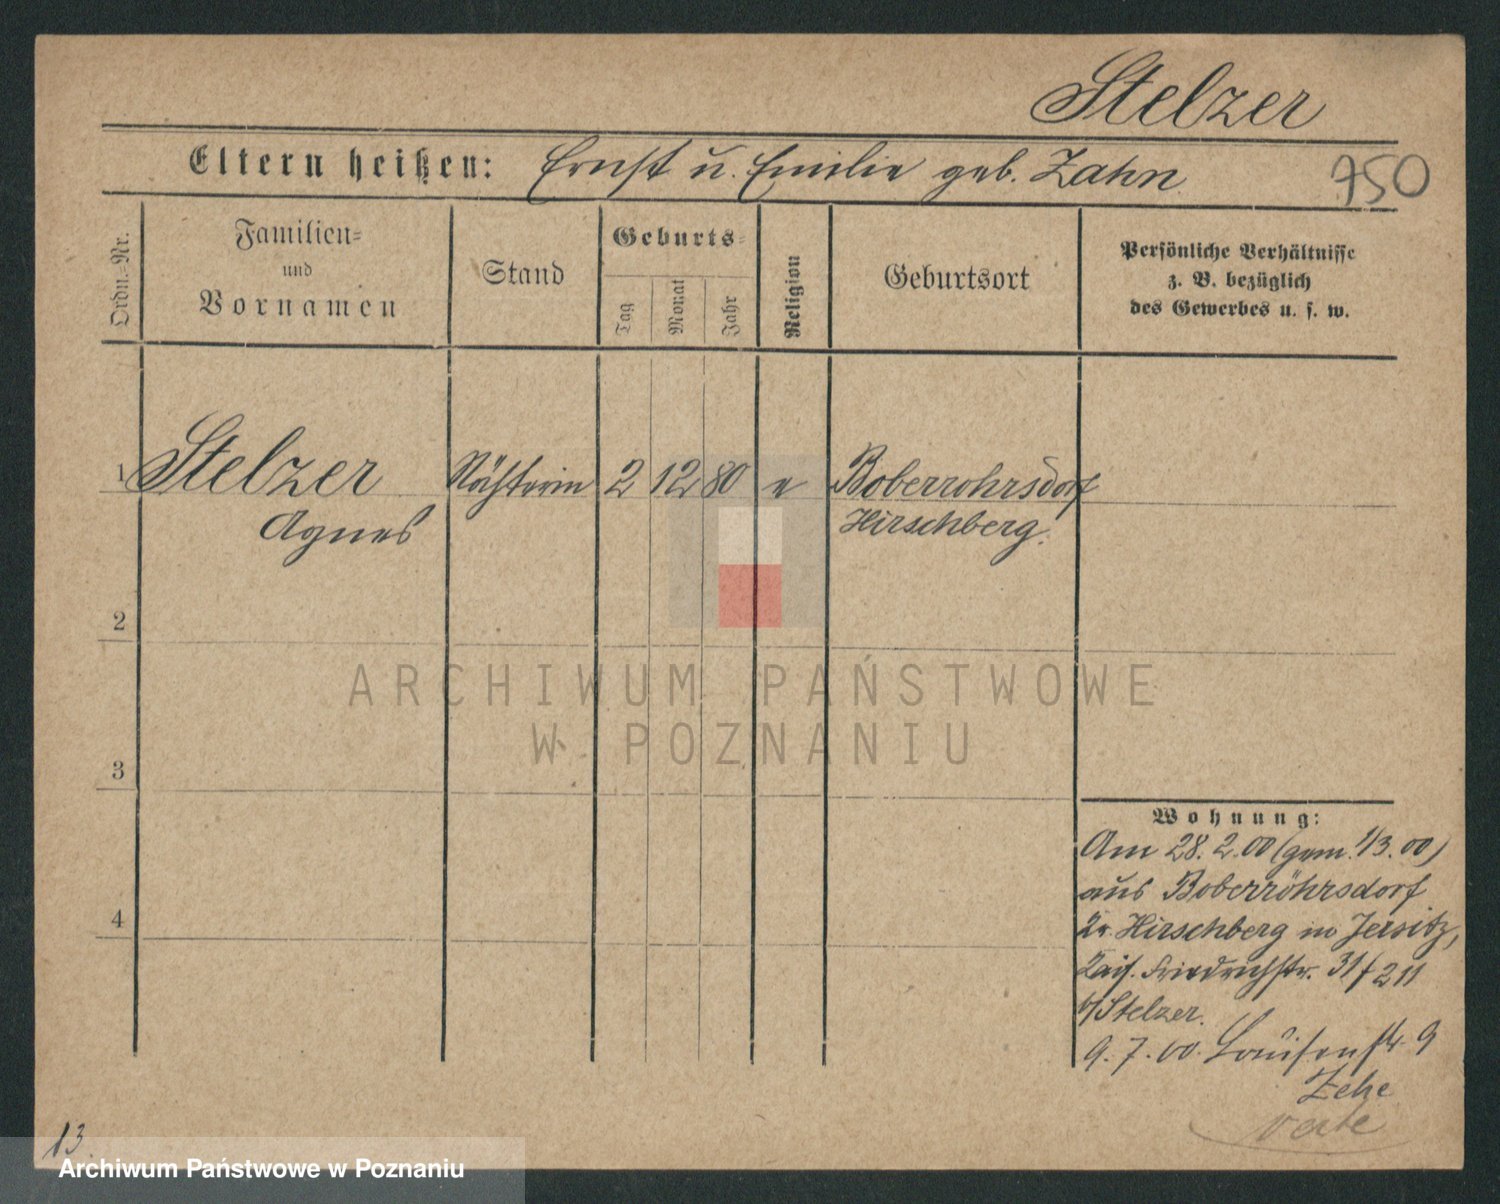 Stelzer
Eltern heißen: Ernst u. Emilie geb. Zahn
750
Ordn.-Nr.
Familien-
und
Vornamen
Stand
Geburts-
Tag
Monat
Jahr
Religion
Geburtsort
Persönliche Verhältnisse
z. B. bezüglich
des Gewerbes u. s. w.
1 Stelzer Nähterin 2 12 80 e Boberröhrsdorf
Agnes Hirschberg.
2
ARCHIWUM PAŃSTWOWE
W POZNANIU
3
4
Wohnung:
Am 28.2.00 (gem. 1/3.00)
aus Boberröhrsdorf
Hirschberg in Jersitz,
Friedrichstr. 31
b/Stelzer.
9.7.00. Louisenstr. 9
verte
13.
Archiwum Państwowe w Poznaniu